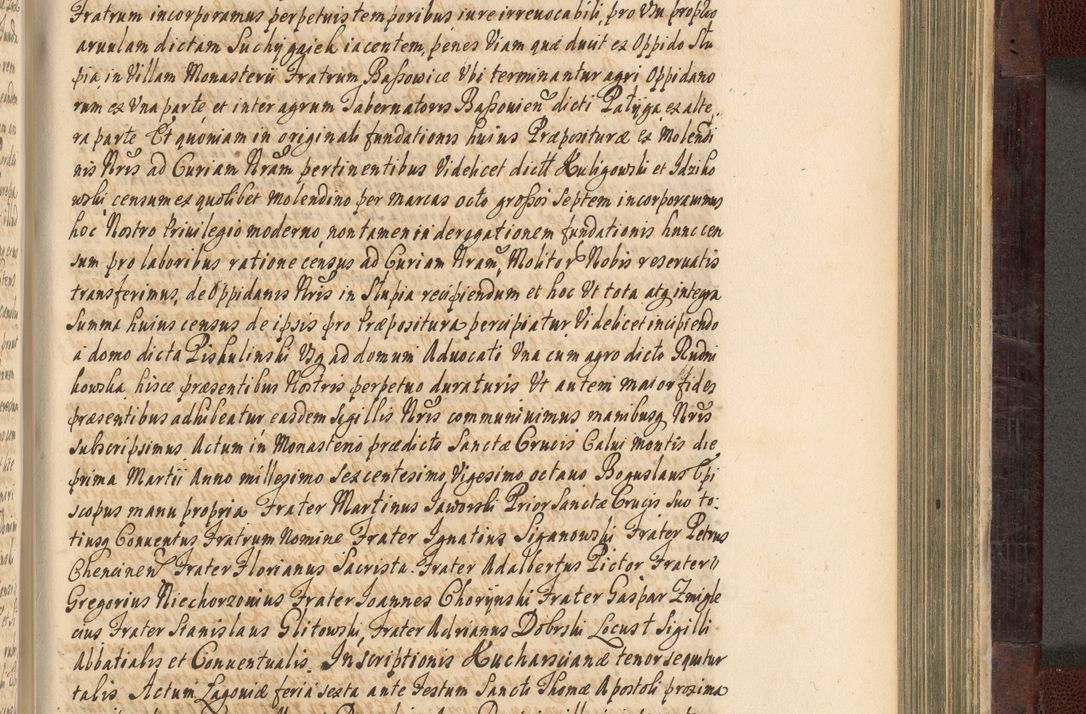 Fratrum incorporamus perpetuis temporibus iure irreuocabili, pro Vsu proprio
aruulam dictam Suchy gaieh iacentem, penes Viam quæ ducit ex Oppido Slu
pia, in Villam Monasterii Fratrum Baßowice Vbi terminantur agri Oppidano
rum ex Vna parte et inter agrum Tabernatoris Baßouien dicti Patyga, ex alte
ra parte Et quoniam in originali fundationis huius Præposituræ ex Molendi
nis Nris ad Curiam Nram pertinentibus Videlicet dictt Huligowski et Idziko
wski censum ex quolibet molendino per marcas octo großos septem incorporauimus
hoc Nostro Priuilegio moderno, non tamen in deragationem fundationis hunc cen
sum pro laboribus ratione census ad Curiam Nram, Molitor Nobis reseruatis
transferimus, de Oppidanis Nris in Slupia recipiendum et hoc Vt tota atq integra
Summa huius census de ipsis pro Præpositura percipiatur Videlicet incipiendo
a domo dicta Piskulinski Vsq ad domum Aduocati Vna cum agro dicto Rudni
kowska, hisce præsentibus Nostris perpetuo duraturis Vt autem maior fides
præsentibus adhibeatur easdem sigillis Nris communiuimus manibusq Nris
subscripsimus Actum in Monasterio prædicto Sanctæ Crucis Calui Montis die
prima Martii Anno millesimo Sexcentesimo Vigesimo octauo Boguslaus Epi
scopus manu propria Frater Martinus Jaworski Prior Sanctæ Crucis Suo to-
tiusq Conuentus Fratrum Nomine Frater Ignatius Siganowski Frater Petrus
Chencinen Frater Florianus Sacrista. Frater Adalbertus Pictor Frater
Gregorius Niechorzouius Frater Joannes Chorynski Frater Gaspar Zmigle
cius Frater Stanislaus Glitowski, Frater Adrianus Dobrski Locus t Sigilli
Abbatialis et Conuentualis. Inscriptionis Kucharscianæ tenor sequitur
talis Actum Lagouiæ feria sexta ante Festum Sancti Thomæ Apostoli proxima